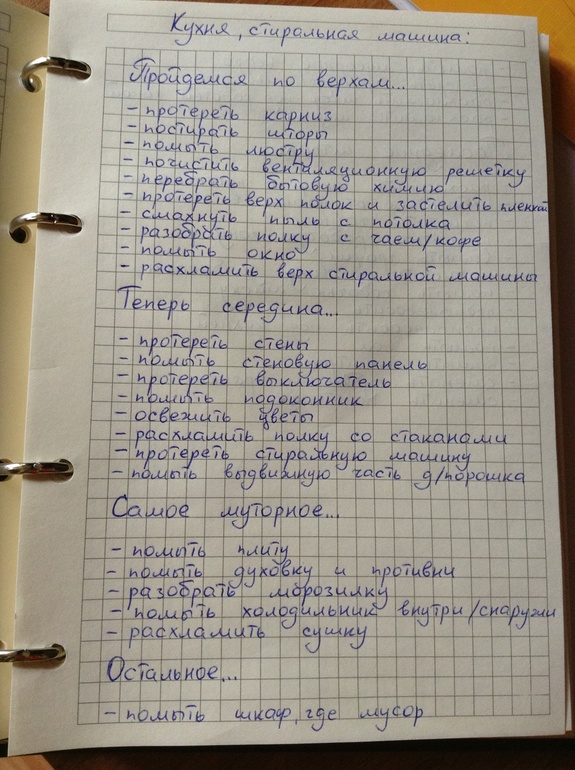 Кухня, стиральная машина:
Пройдемся по верхам...
- протереть карниз
- постирать шторы
- помыть люстру
- почистить вентиляционную решетку
- перебрать бытовую химию
- протереть верх полок и застелить пленкой
- смахнуть пыль с потолка
- разобрать полку с чаем/кофе
- помыть окно
- расхламить верх стиральной машины
Теперь середина...
- протереть стены
- помыть стеновую панель
- протереть выключатель
- помыть подоконник
- освежить цветы
- расхламить полку со стаканами
- протереть стиральную машину
- помыть выдвижную часть д/порошка
Самое муторное...
- помыть плиту
- помыть духовку и противни
- разобрать морозилку
- помыть холодильник внутри/снаружи
- расхламить сушку
Остальное...
- помыть шкаф, где мусор